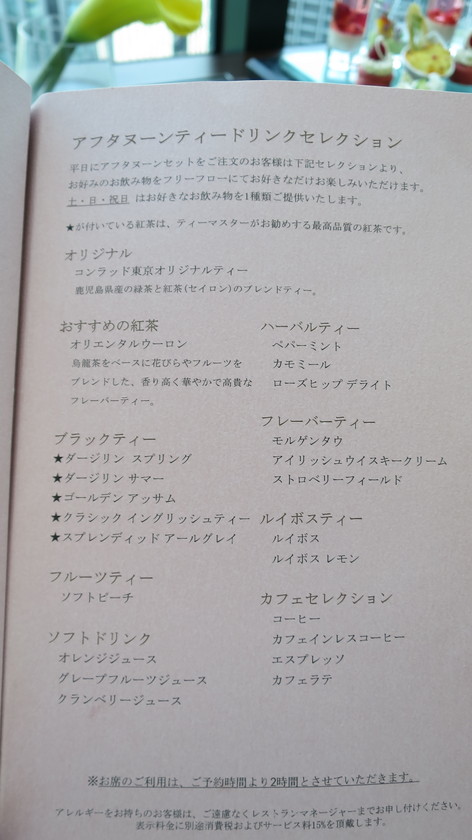 アフタヌーンティードリンクセレクション
平日にアフタヌーンセットをご注文のお客様は下記セレクションより、
お好みのお飲み物をフリーフローにてお好きなだけお楽しみいただけます。
土・日・祝日 はお好きなお飲み物を1種類ご提供いたします。
★が付いている紅茶は、ティーマスターがお勧めする最高品質の紅茶です。
オリジナル
コンラッド東京オリジナルティー
鹿児島県産の緑茶と紅茶(セイロン)のブレンドティー。
おすすめの紅茶
オリエンタルウーロン
烏龍茶をベースに花びらやフルーツを
ブレンドした、香り高く華やかで高貴な
フレーバーティー。
ブラックティー
★ダージリン スプリング
★ダージリン サマー
★ゴールデン アッサム
★クラシック イングリッシュティー
★スプレンディッド アールグレイ
フルーツティー
ソフトピーチ
ソフトドリンク
オレンジジュース
グレープフルーツジュース
クランベリージュース
ハーバルティー
ペパーミント
カモミール
ローズヒップ デライト
フレーバーティー
モルゲンタウ
アイリッシュウイスキークリーム
ストロベリーフィールド
ルイボスティー
ルイボス
ルイボス レモン
カフェセレクション
コーヒー
カフェインレスコーヒー
エスプレッソ
カフェラテ
※お席のご利用は、ご予約時間より2時間とさせていただきます。
アレルギーをお持ちのお客様は、ご遠慮なくレストランマネージャーまでお申し付けください。
表示料金に別途消費税およびサービス料15%を頂戴します。